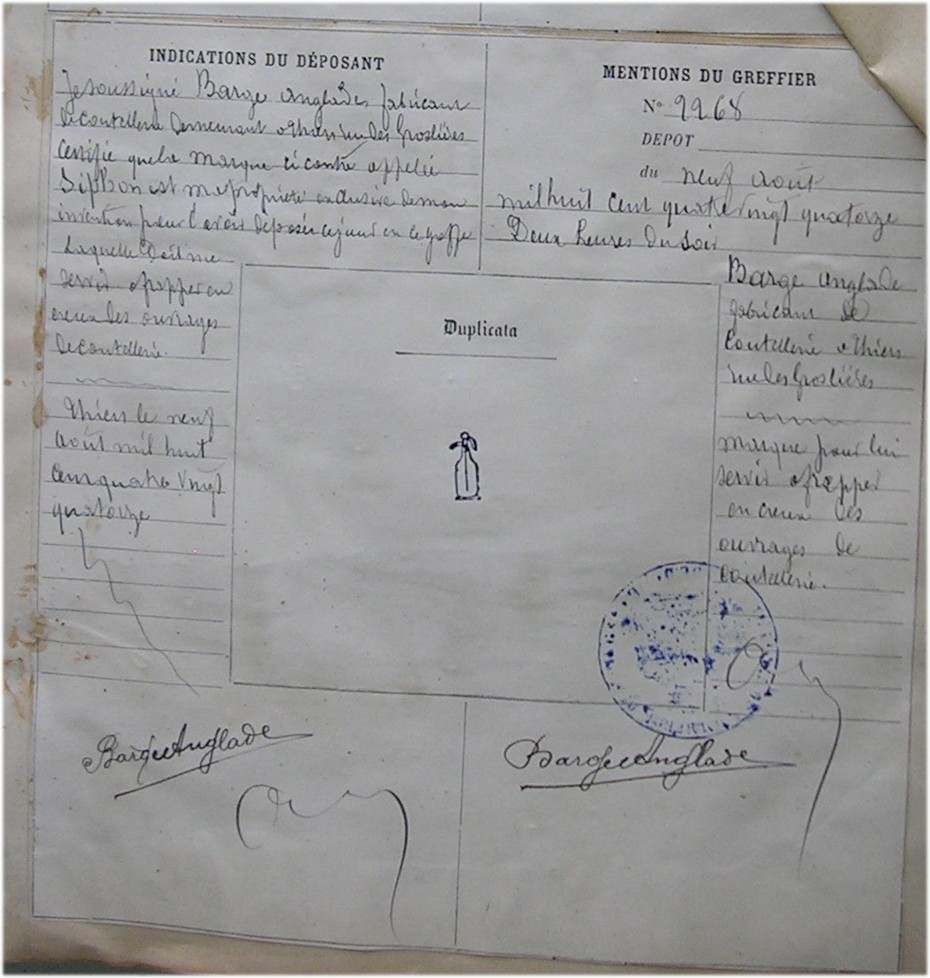 INDICATIONS DU DÉPOSANT
Je soussigné Barge Anglade, fabricant
de coutellerie demeurant à Thiers rue des Grosliéres
certifie que la marque ci contre appelée
Siphon est ma propriété exclusive de mon
invention pour l'avoir déposée ce jour en ce Greffe
Laquelle doit me
servir à frapper en
creux des ouvrages
de coutellerie.
Thiers le neuf
août mil huit
cent quatre vingt
quatorze
MENTIONS DU GREFFIER
No 9968
DEPOT
du neuf août
mil huit cent quatre vingt quatorze
Deux heures du soir
Barge Anglade
fabricant de
Coutellerie à Thiers
rue des Grosliéres
marque pour lui
servir à frapper
en creux des
ouvrages de
coutellerie.
Duplicata
Barge Anglade
Barge Anglade